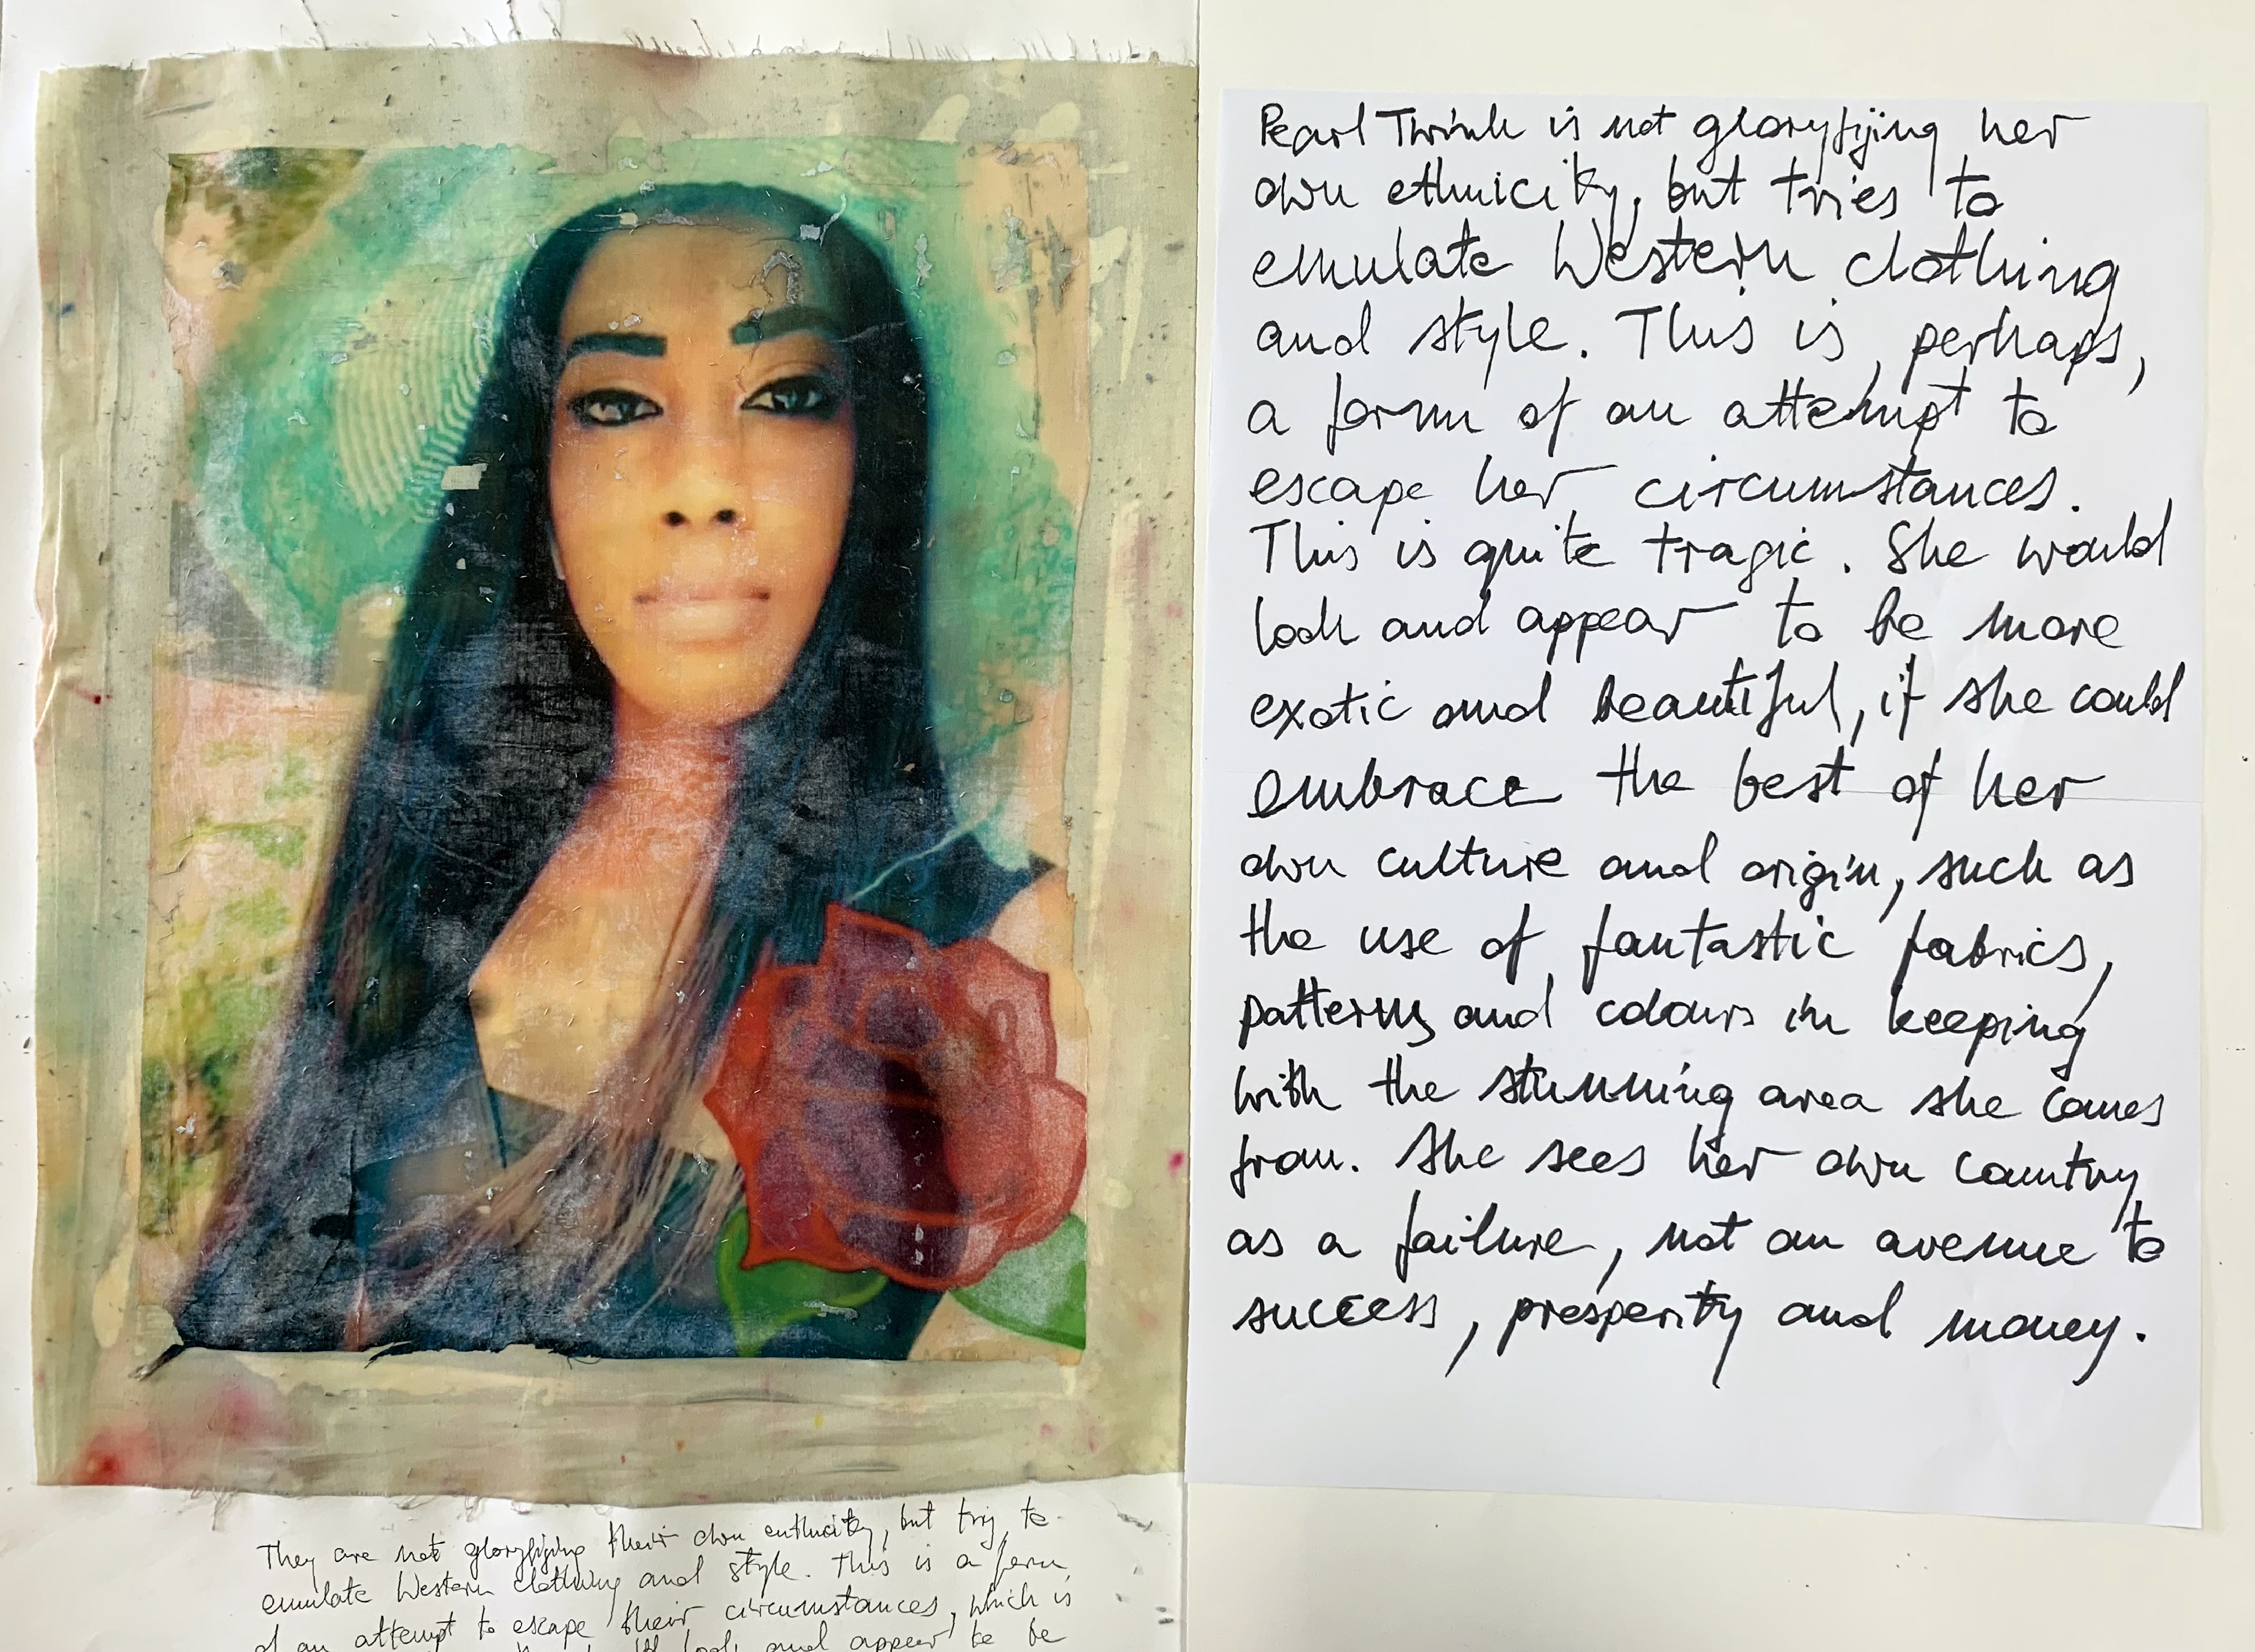 Pearl Thrink is not gloryfijing her
own ethnicity, but tries to
emulate Western clothing
and style. This is, perhaps,
a form of an attempt to
escape her circumstances.
This is quite tragic. She would
look and appear to be more
exotic and beautiful, if she could
embrace the best of her
own culture and origin, such as
the use of fantastic fabrics,
patterns and colours in keeping
with the stunning area she comes
from. She sees her own country
as a failure, not an avenue to
success, prosperity and money.
They are not gloryfijing their own enthicity, but try to
emulate Western clothing and style. This is a form
of an attempt to escape their circumstances, which is
look and appear to be